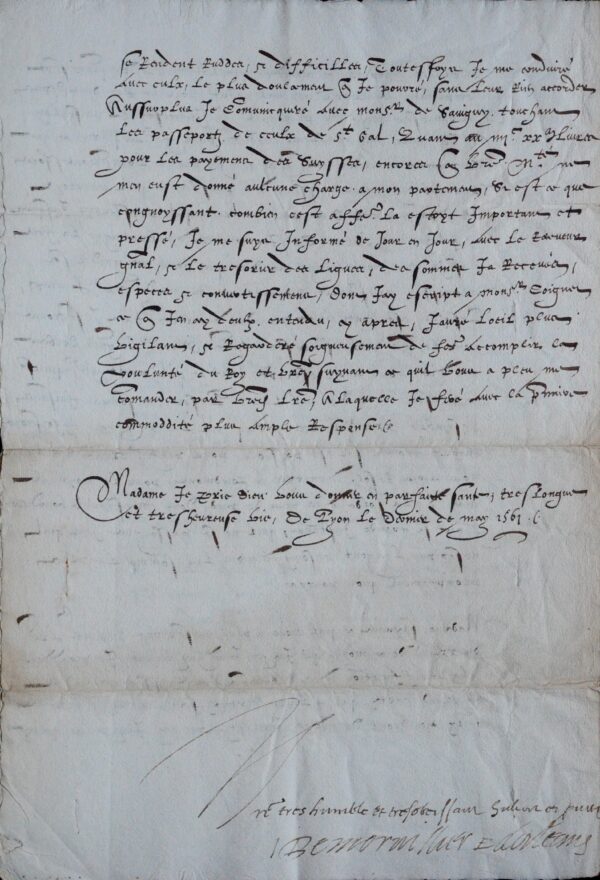 se Rendent Ruddes, et difficilles, Toutesfoys Je me conduiré
avec eulx, le plus doulcement que Je pouvré, sans leur Rien accorder
Aussurplus Je comunicqueré avec monsr de Savigny, touchant
Les passeportz de ceulx de st Gal, Quant au mil livres
pour Les payemens des Suysses, encores que vre Mté ne
men eust donné aultune charge a mon partement, si est ce que
congnoyssant combien cest affre La estoyt Important et
pressé, Je me suys Informé de Jour en Jour, avec le Receveur
gnal, et le tresorier des Ligues, des sommes Ja Receues,
especes et convertissement, dont Jay escript a monsr
ce que Jen ay deulx entendu, cy apres, Jauré Loeil plus
vigilant, et Regarderé soigneusement de fre accomplir la
voulunté du Roy et vre, suyvant ce quil vous a pleu me
comander, par vres Lres, A laquelle Je feré avec la premiere
commoddité plus ample Response
Madame Je prie dieu vous donner en parfaite santé, tres longue
et tresheureuse vie, De Lyon le dernier de may 1561
Vre treshumble et tresobeissant